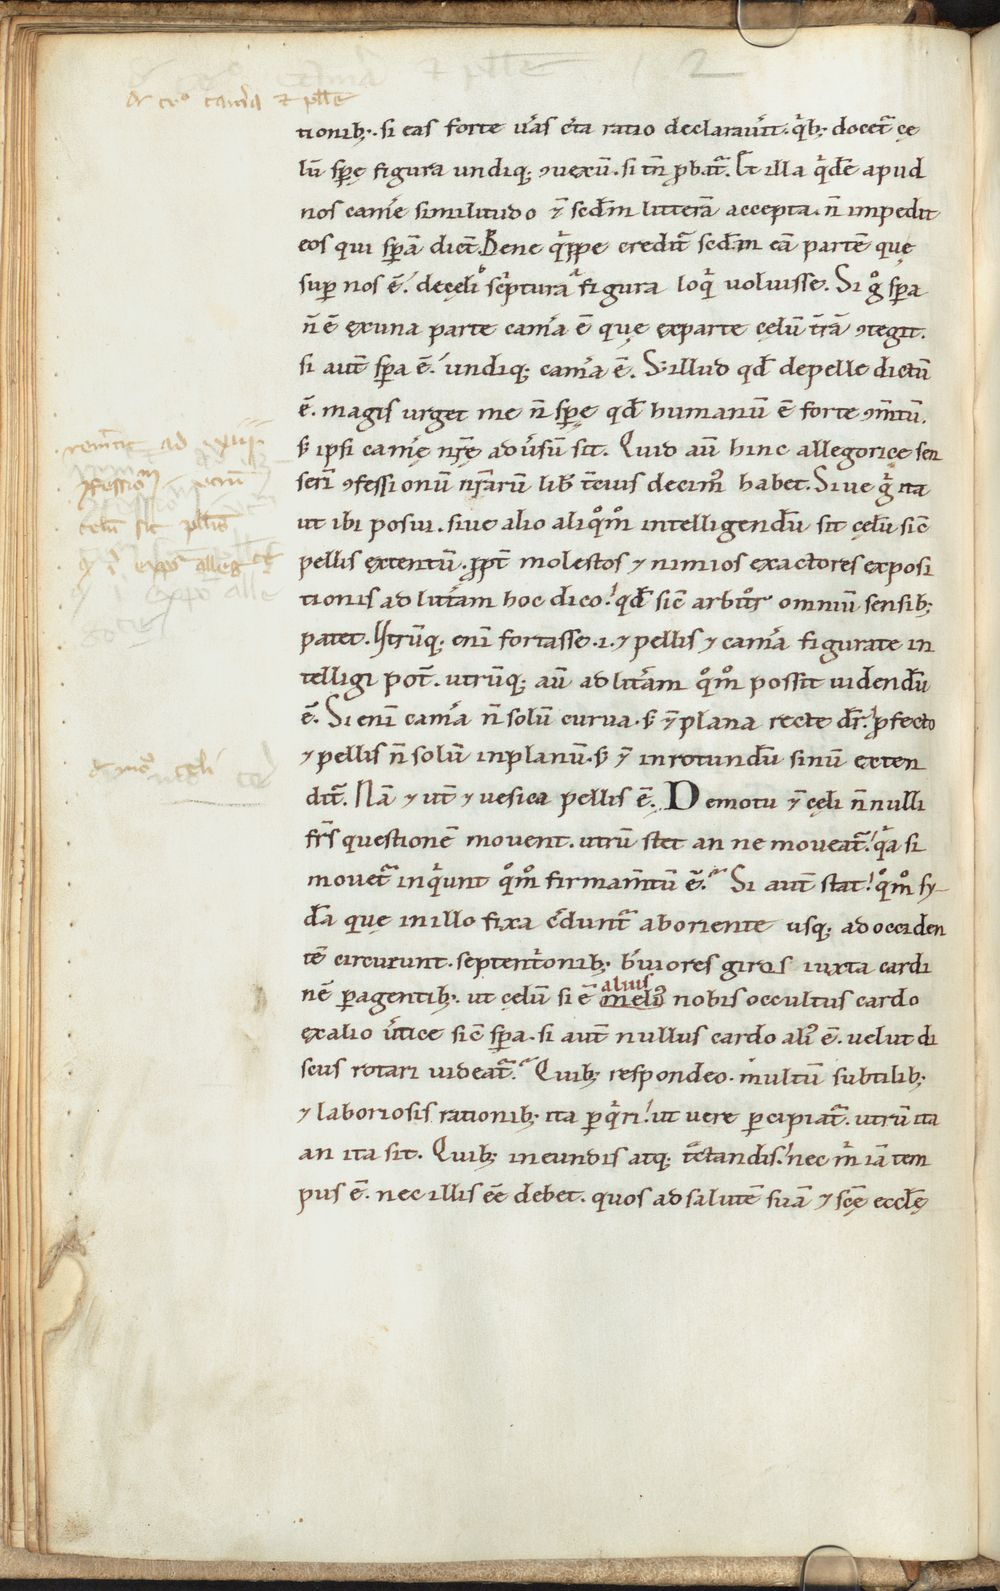 tionib;. si eas forte u͛as c͛ta ratio declarau͛it. q͛b; docet᷑ cę
lū sp̄ę figura undiq; ꝯuexū. si tn̄ ꝓbat᷑. Et illa q͛de apud
nos cam͛e similitudo ⁊̄ scdm litterā accepta. n̄ impedit
eos qui sp̄ā dict̄. Bene q͛ppe credit᷑ scdm eā partē quę
suꝑ nos ē. decęli sc͛pturā figura loq͛ uoluisse. Si g̊ sp̄a
n̄ ē exuna parte cam͛a ē quę exparte cęlū t͛rā ꝯtegit.
si aut̄ sp̄a ē. undiq; cam͛a ē. S; illud qđ depelle dictū
ē. magis urget me n̄ sp̄ę qđ humanū ē forte ꝯm̄tū.
s; ipsi cam͛ę nr̄ę adu͛sū sit. Quid aū hinc allegorice sen
serī ꝯfessionū nr̄arū lib͛ t͛cius decim᷒ habet. Siue g͛ ita
ut ibi posui. siue alio aliq̊m̊ intelligendū sit cęlū sic̄
pellis extentū. ꝓpt̄ molestos ⁊ nimios exactores exposi
tionis ad litt͛am hoc dico. qđ sic̄ arbitror omniū sensib;
patet. Utrūq; enī fortasse .i. ⁊ pellis ⁊ cam͛a figurate in
telligi pot̄. utrūq; aū ad litt͛am q̊m̊ possit uidendū
ē. Si enī cam͛a n̄ solū curua. s; ⁊̄ plana recte dr̄. ꝓfecto
⁊ pellis n̄ solū inplanū. s; ⁊̄ inrotundū sinū exten
dit᷑. Nā ⁊ ut̄ ⁊ uesica pellis ē. Demotu ⁊̄ cęli n̄nulli
fr̄s questionē mouent. utrū stet an ne moueat᷑. q͛a si
mouet᷑ inq͛unt q̊m̊ firmam̄tū ē. Si aut̄ stat. q̊m̊ sy-
đa que inillo fixa c͛dunt᷑ aboriente usq; adocciden
tē circueunt. septent͛onib; b͛uiores giros iuxta cardi
nē ꝑagentib;. ut cęlū si ē meli᷒ nobis occultus cardo
alius
exalio u͛tice sic̄ sp̄a. si aut̄ nullus cardo ali᷒ ē. uelut di
scus rotari uideat᷑. Quib; respondeo. multū subtilib;
⁊ laboriosis rationib; ita ꝑq͛ri. ut uere ꝑcipiat᷑. utrū ita
an ita sit. Quib; ineundis atq; t͛ctandis. nec m͛ iā tem
pus ē. nec illis eē debet. quos ad salutē suā ⁊ scę eccłę